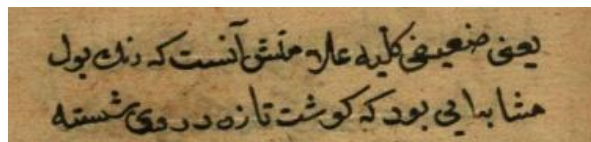 یعنی ضعیفی کلیه علامتش آنست که رنك بول
مشابه ابی بود که کوشت تازه در وی شسته